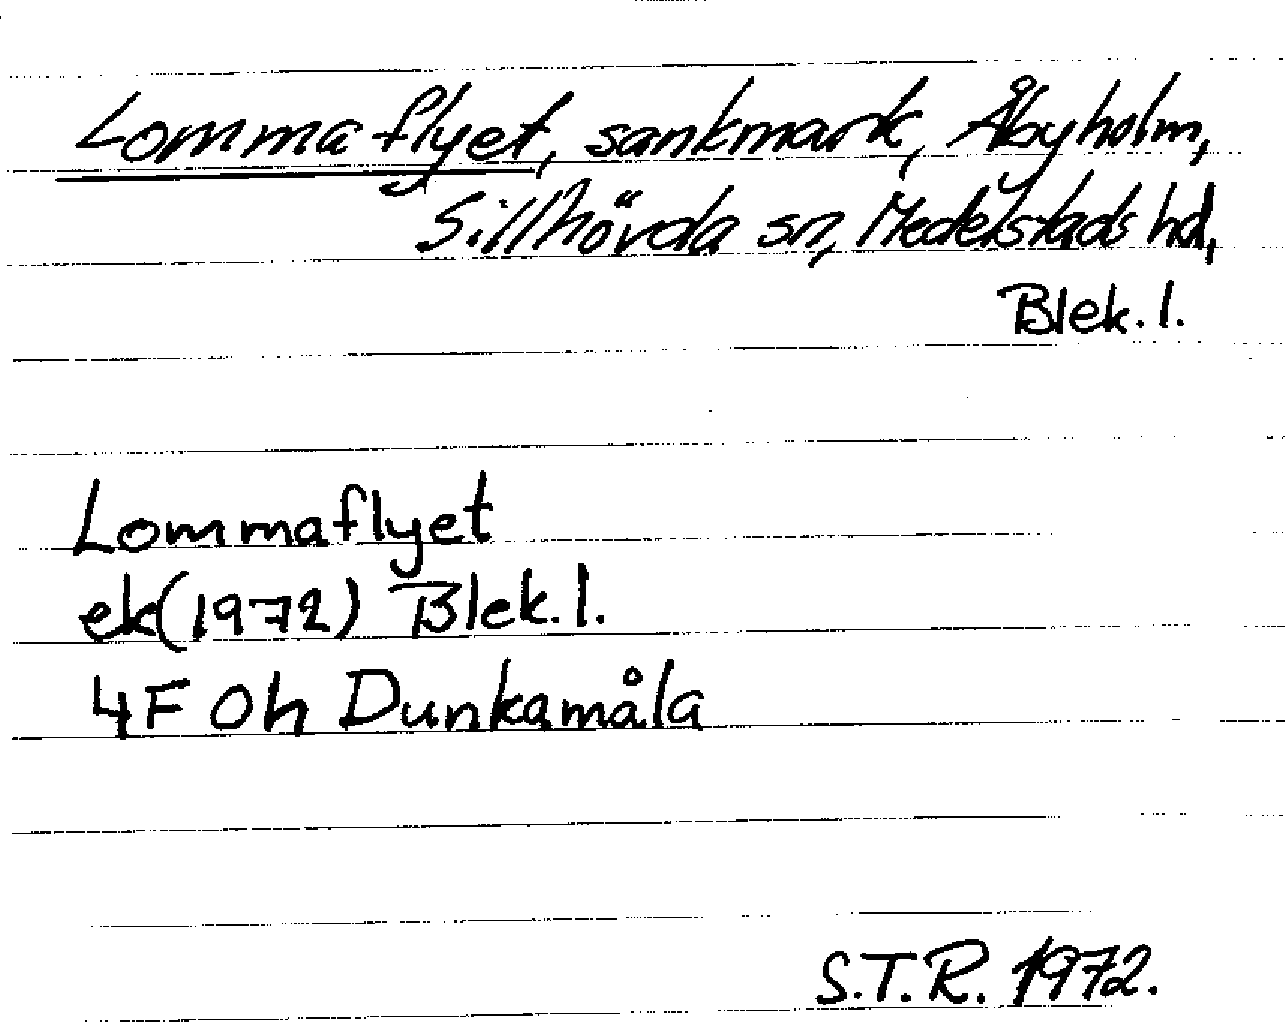 Lommaflyet, sankmark, Åbyholm,
Sillhövda sn, Medelstads hd,
Blek. l.
Lommaflyet
ek (1972) Blek. l.
4F 0h Dunkamåla
S.T.R. 1972.